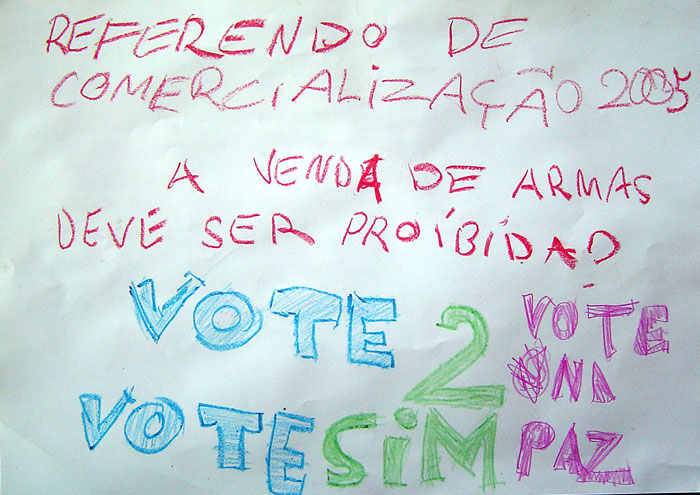 REFERENDO DE
COMERCIALIZAÇÃO 2005
A VENDA DE ARMAS
DEVE SER PROIBIDAD
VOTE 2
VOTE SIM
VOTE
UNI
PAZ